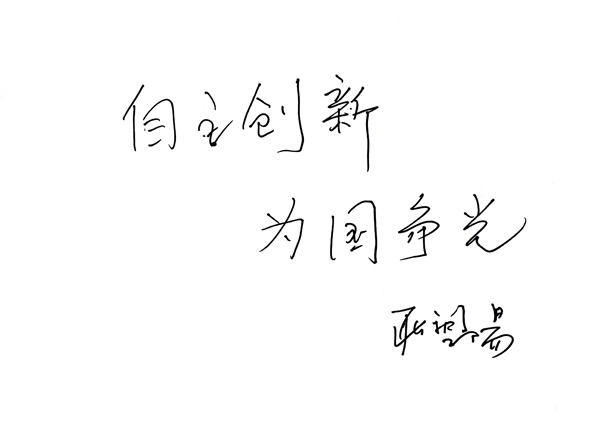 自主创新
为国争光